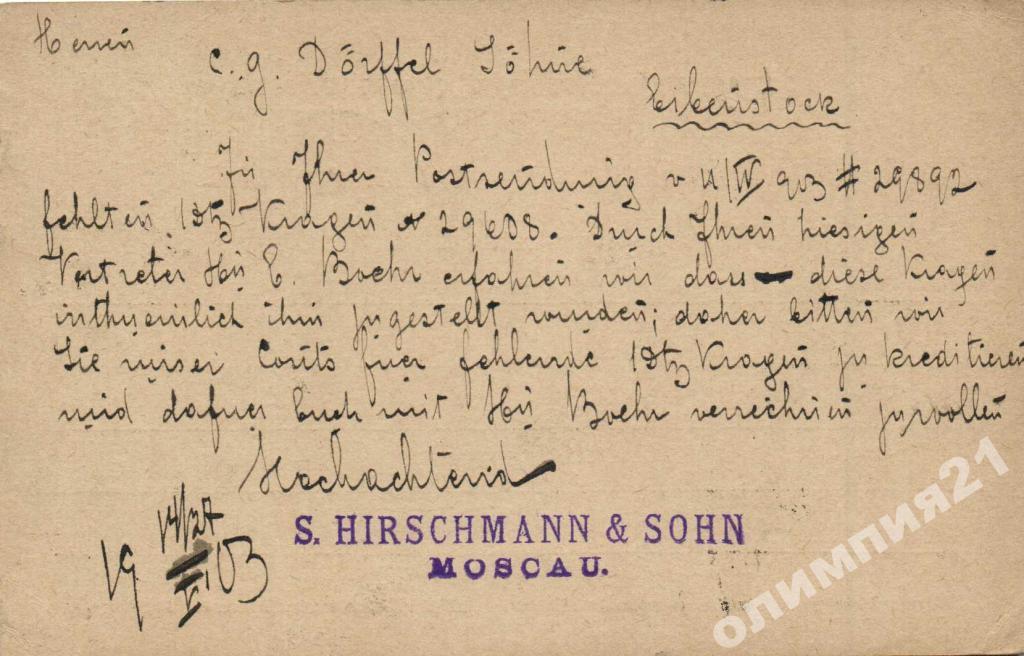 Herren
C. G. Dörffel Söhne
Eibenstock
In Ihrer Postsendung v 4/IV 903 # 29892
fehlten 1 Dtz Kragen 29608. Durch Ihren hiesigen
Vertreter Hn E. Boehr erfahren wir dass diese Kragen
irrthuemlich ihm zugestellt wurden; daher bitten wir
Sie unser Conto fuer fehlende 1 Dtz Kragen zu kreditieren
und dafuer Euch mit Hn Boehr verrechnen zu wollen
Hochachtend
14/27
19 V 03
S. HIRSCHMANN & SOHN
MOSCAU.
олимпия21